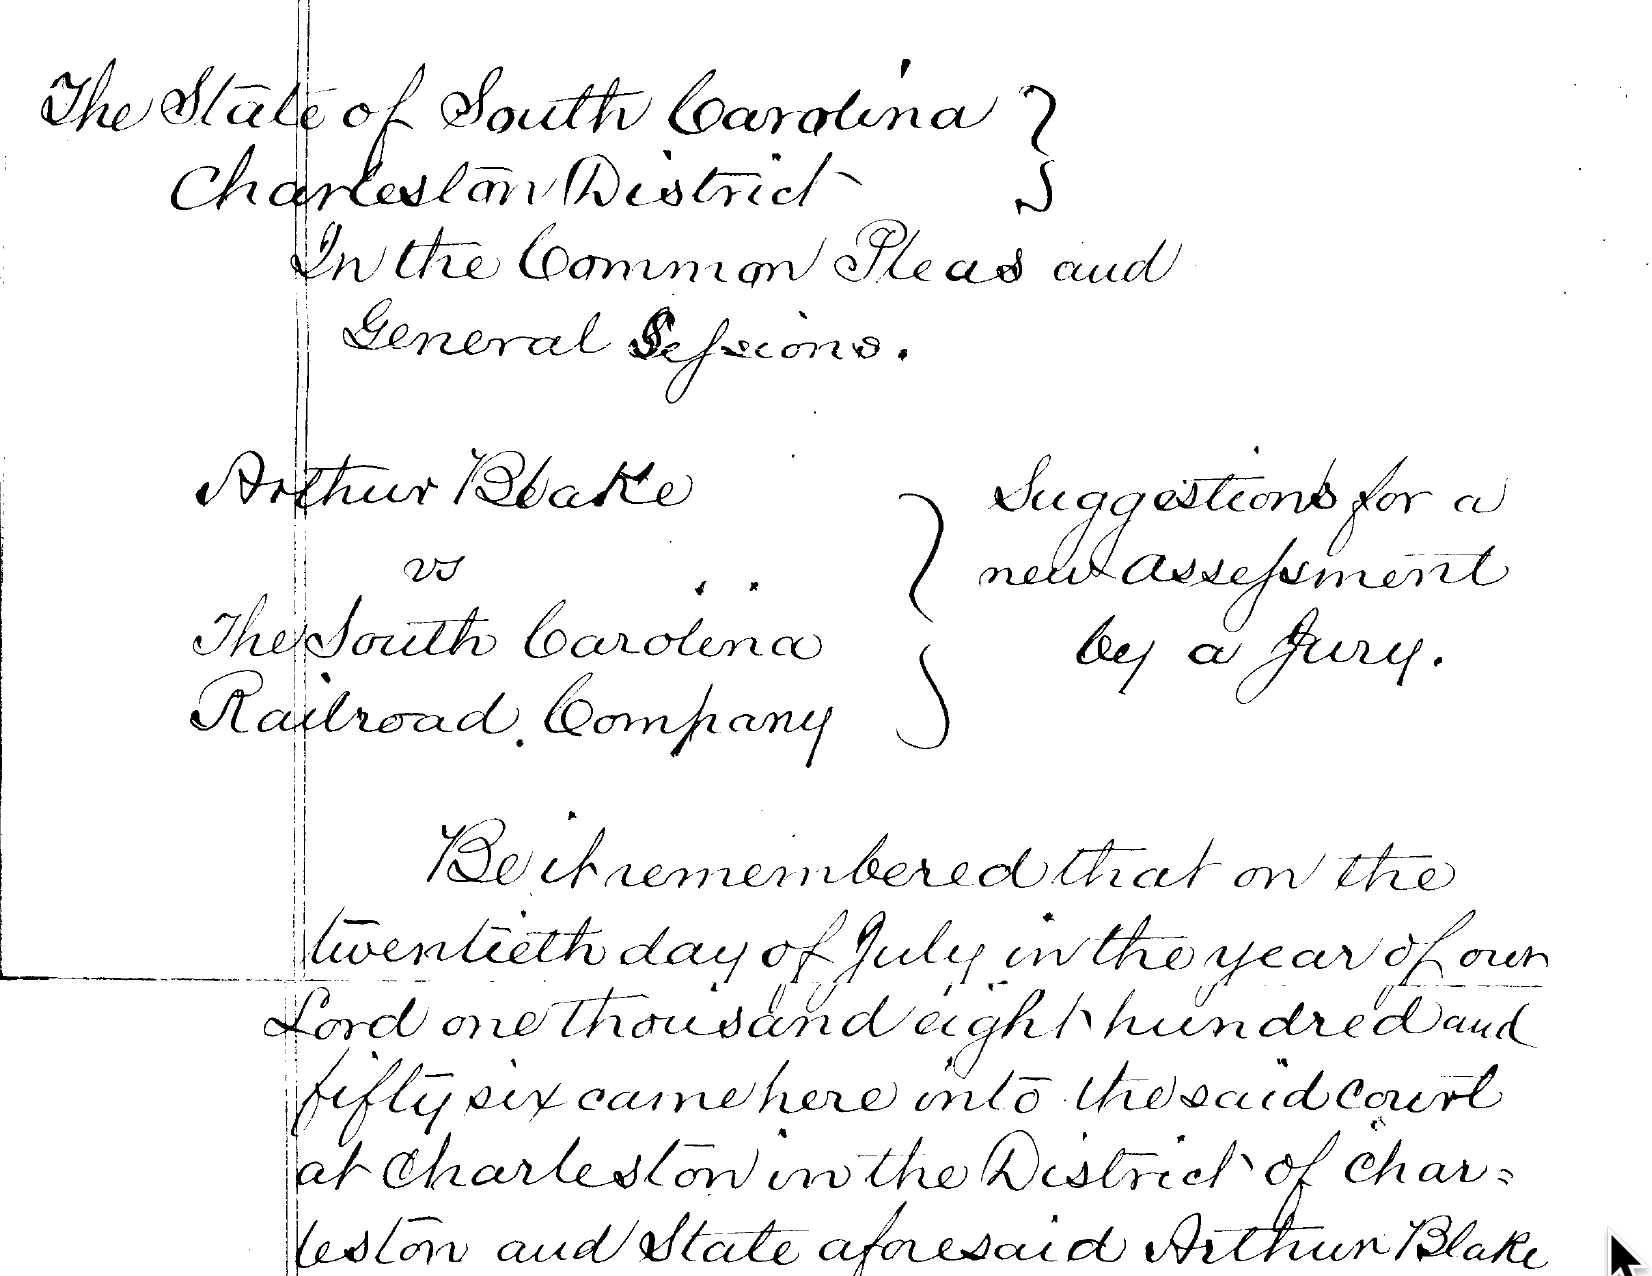 The State of South Carolina
Charleston District
In the Common Pleas and
General Sessions.
Arthur Blake
vs
The South Carolina
Railroad Company
Suggestions for a
new assessment
by a Jury.
Be it remembered that on the
twentieth day of July in the year of our
Lord one thousand eight hundred and
fifty six came here into the said court
at Charleston in the District of Char=
leston and State aforesaid Arthur Blake